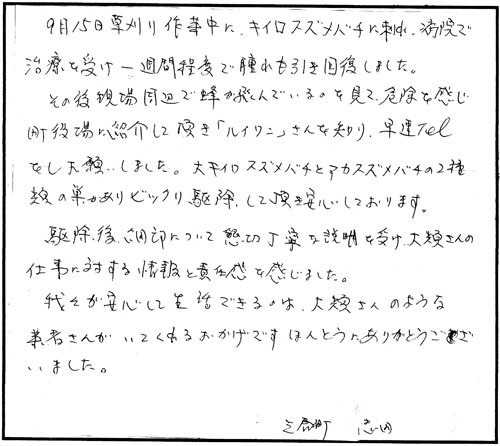 9月15日草刈り作業中に、キイロスズメバチに刺され、病院で
治療を受け一週間程度で腫れも引き回復しました。
その後現場周辺で蜂が飛んでいるのを見て、危険を感じ
町役場に紹介して頂き「ルイワン」さんを知り、早速Tel
をしお願いしました。大キイロスズメバチとアカスズメバチの2種
類の巣がありビックリ駆除して頂き安心しております。
駆除後、細部について懇切丁寧な説明を受け、大類さんの
仕事に対する情報と責任感を感じました。
我々が安心して生活できるのは、大類さんのような
業者さんがいてくれるおかげですほんとうにありがとうござ
いました。
町 志田